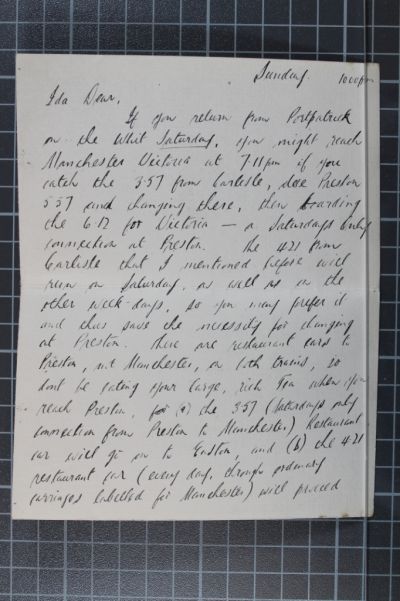 Sunday. 10.00pm
Ida Dear,
If you return from Portpatrick
on the Whit Saturday, you might reach
Manchester Victoria at 7.11pm if you
catch the 3.57 from Carlisle, due Preston
5.57 and changing there, then boarding
the 6.12 for Victoria — a Saturdays only
connection at Preston. The 4.21 from
Carlisle that I mentioned before will
run on Saturday, as well as on the
other week-days, so you may prefer it
and thus save the necessity for changing
at Preston. There are restaurant cars to
Preston, not Manchester, on both trains, so
dont be eating your large, rich tea when you
reach Preston, for (a) the 3.57 (Saturdays only
connection from Preston to Manchester) Restaurant
car will go on to Euston, and (b) the 4.21
restaurant car (every day, through ordinary
carriages labelled for Manchester) will proceed